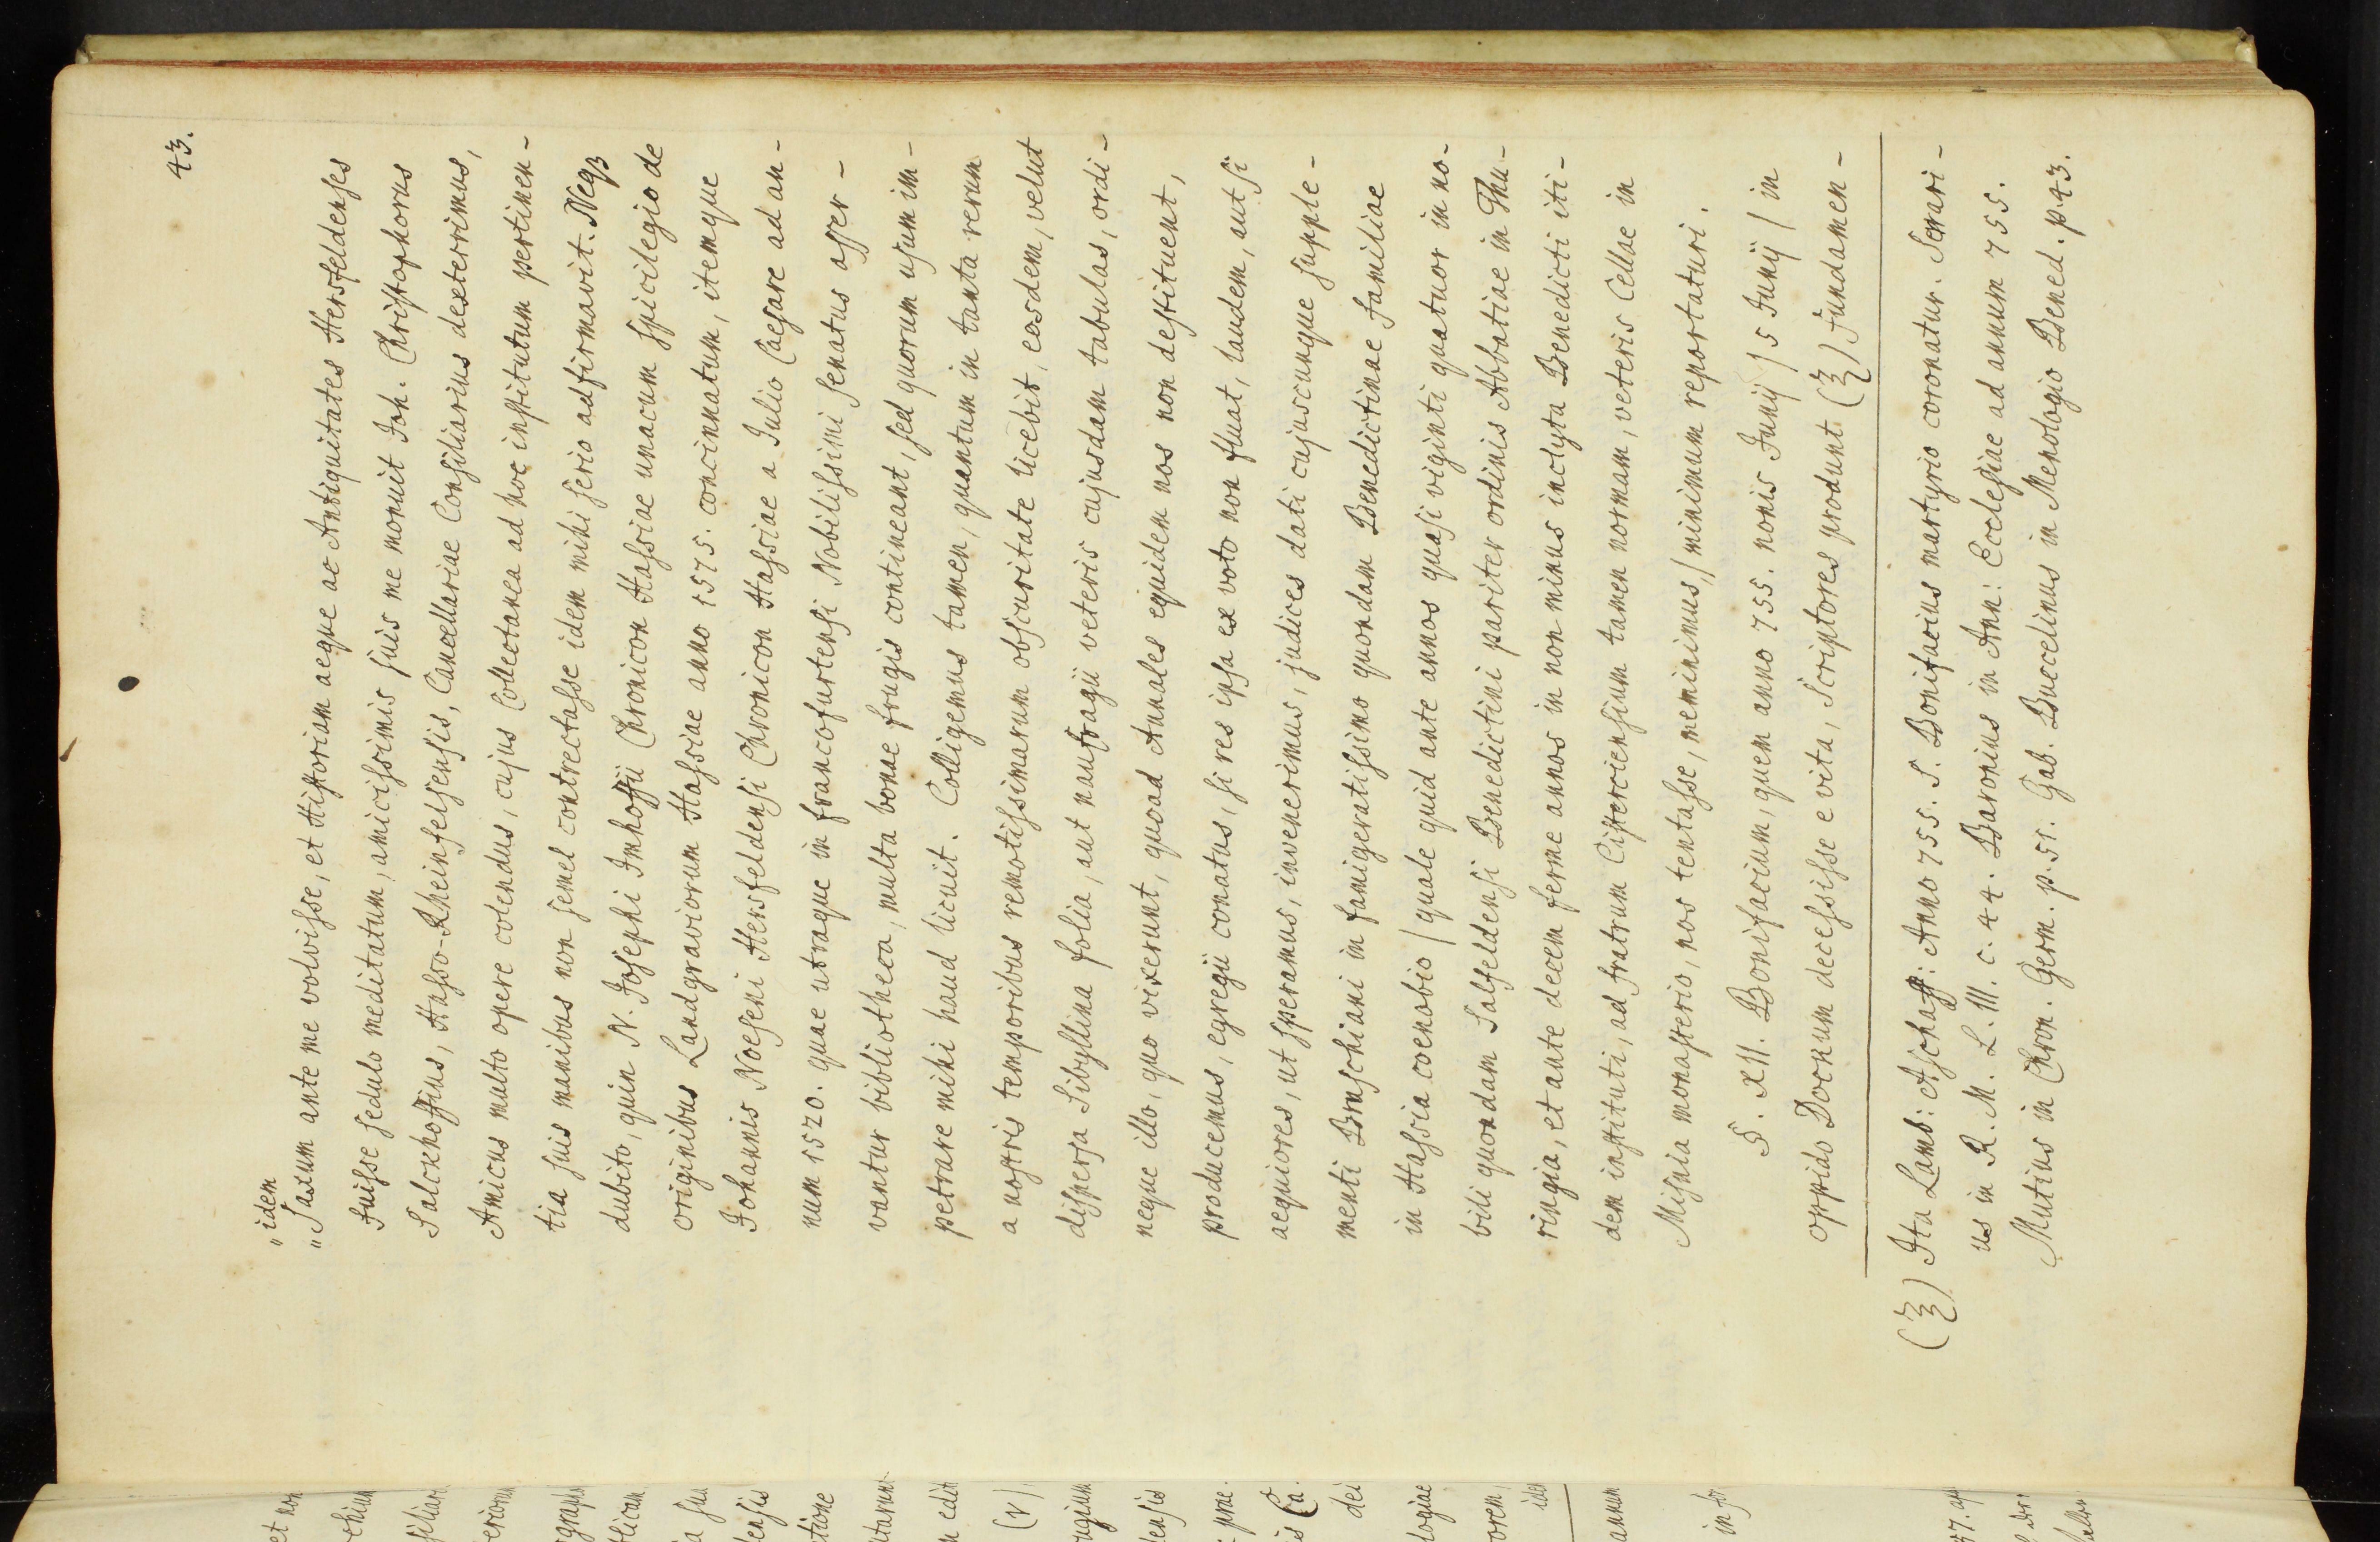 43.
„idem
„Saxum ante me volvisse, et Historiam aeque ac Antiquitates Hersfeldenses
fuisse sedulo meditatum, amicissimis suis me monuit Joh. Christophorus
Salckhoffius, Hasso-Rheinfelsensis, Cancellariae Consiliarius dexterrimus,
Amicus multo opere colendus, cujus Collectanea ad hoc institutum pertinen-
tia suis manibus non semel contrectasse idem mihi serio adfirmavit. Neqꝫ
dubito, quin N. Josephi Imhoffii Chronicon Hassiae unacum spicilegio de
originibus Landgraviorum Hassiae anno 1575. concinnatum, itemque
Johannis Noeseni Hersfeldensi Chronicon Hassiae a Julio Caesare ad an-
num 1520. quae utraque in francofurtensi Nobilissimi senatus asser-
vantur bibliotheca, multa bonae frugis contineant, sed quorum usum im-
petrare mihi haud licuit. Colligemus tamen, quantum in tanta rerum
a nostris temporibus remotissimarum obscuritate licebit, eosdem, velut
dispersa Sibyllina folia, aut naufragii veteris cujusdam tabulas, ordi-
neque illo, quo vixerunt, quoad Annales equidem nos non destituent,
producemus, egregii conatus, si res ipsa ex voto non fluat, laudem, aut si
aequiores, ut speramus, invenerimus, judices dati cujuscunque supple-
menti Bruschiani in famigeratissimo quondam Benedictinae familiae
in Hassia coenobio / quale quid ante annos quasi viginti quatuor in no-
bili quondam Salfeldensi Benedictini pariter ordinis Abbatiae in Thu-
ringia, et ante decem ferme annos in non minus inclyta Benedicti iti-
dem instituti, ad fratrum Cisterciensium tamen normam, veteris Cellae in
Misnia monasterio, nos tentasse, meminimus,/ minimum reportaturi.
§. XII. Bonifacium, quem anno 755. nonis Junij / 5 Junij / in
oppido Docnum decessisse e vita, Scriptores produnt (ξ) fundamen-
(ξ) Ita Lamb: Aschaff: Anno 755. S. Bonifacius martyrio coronatur. Serari-
us in R. M. L. III. c. 44. Baronius in Ann: Ecclesiae ad annum 755.
Mutius in Chron. Germ. p. 51. Gab. Buccelinus in Menologio Bened. p. 43.